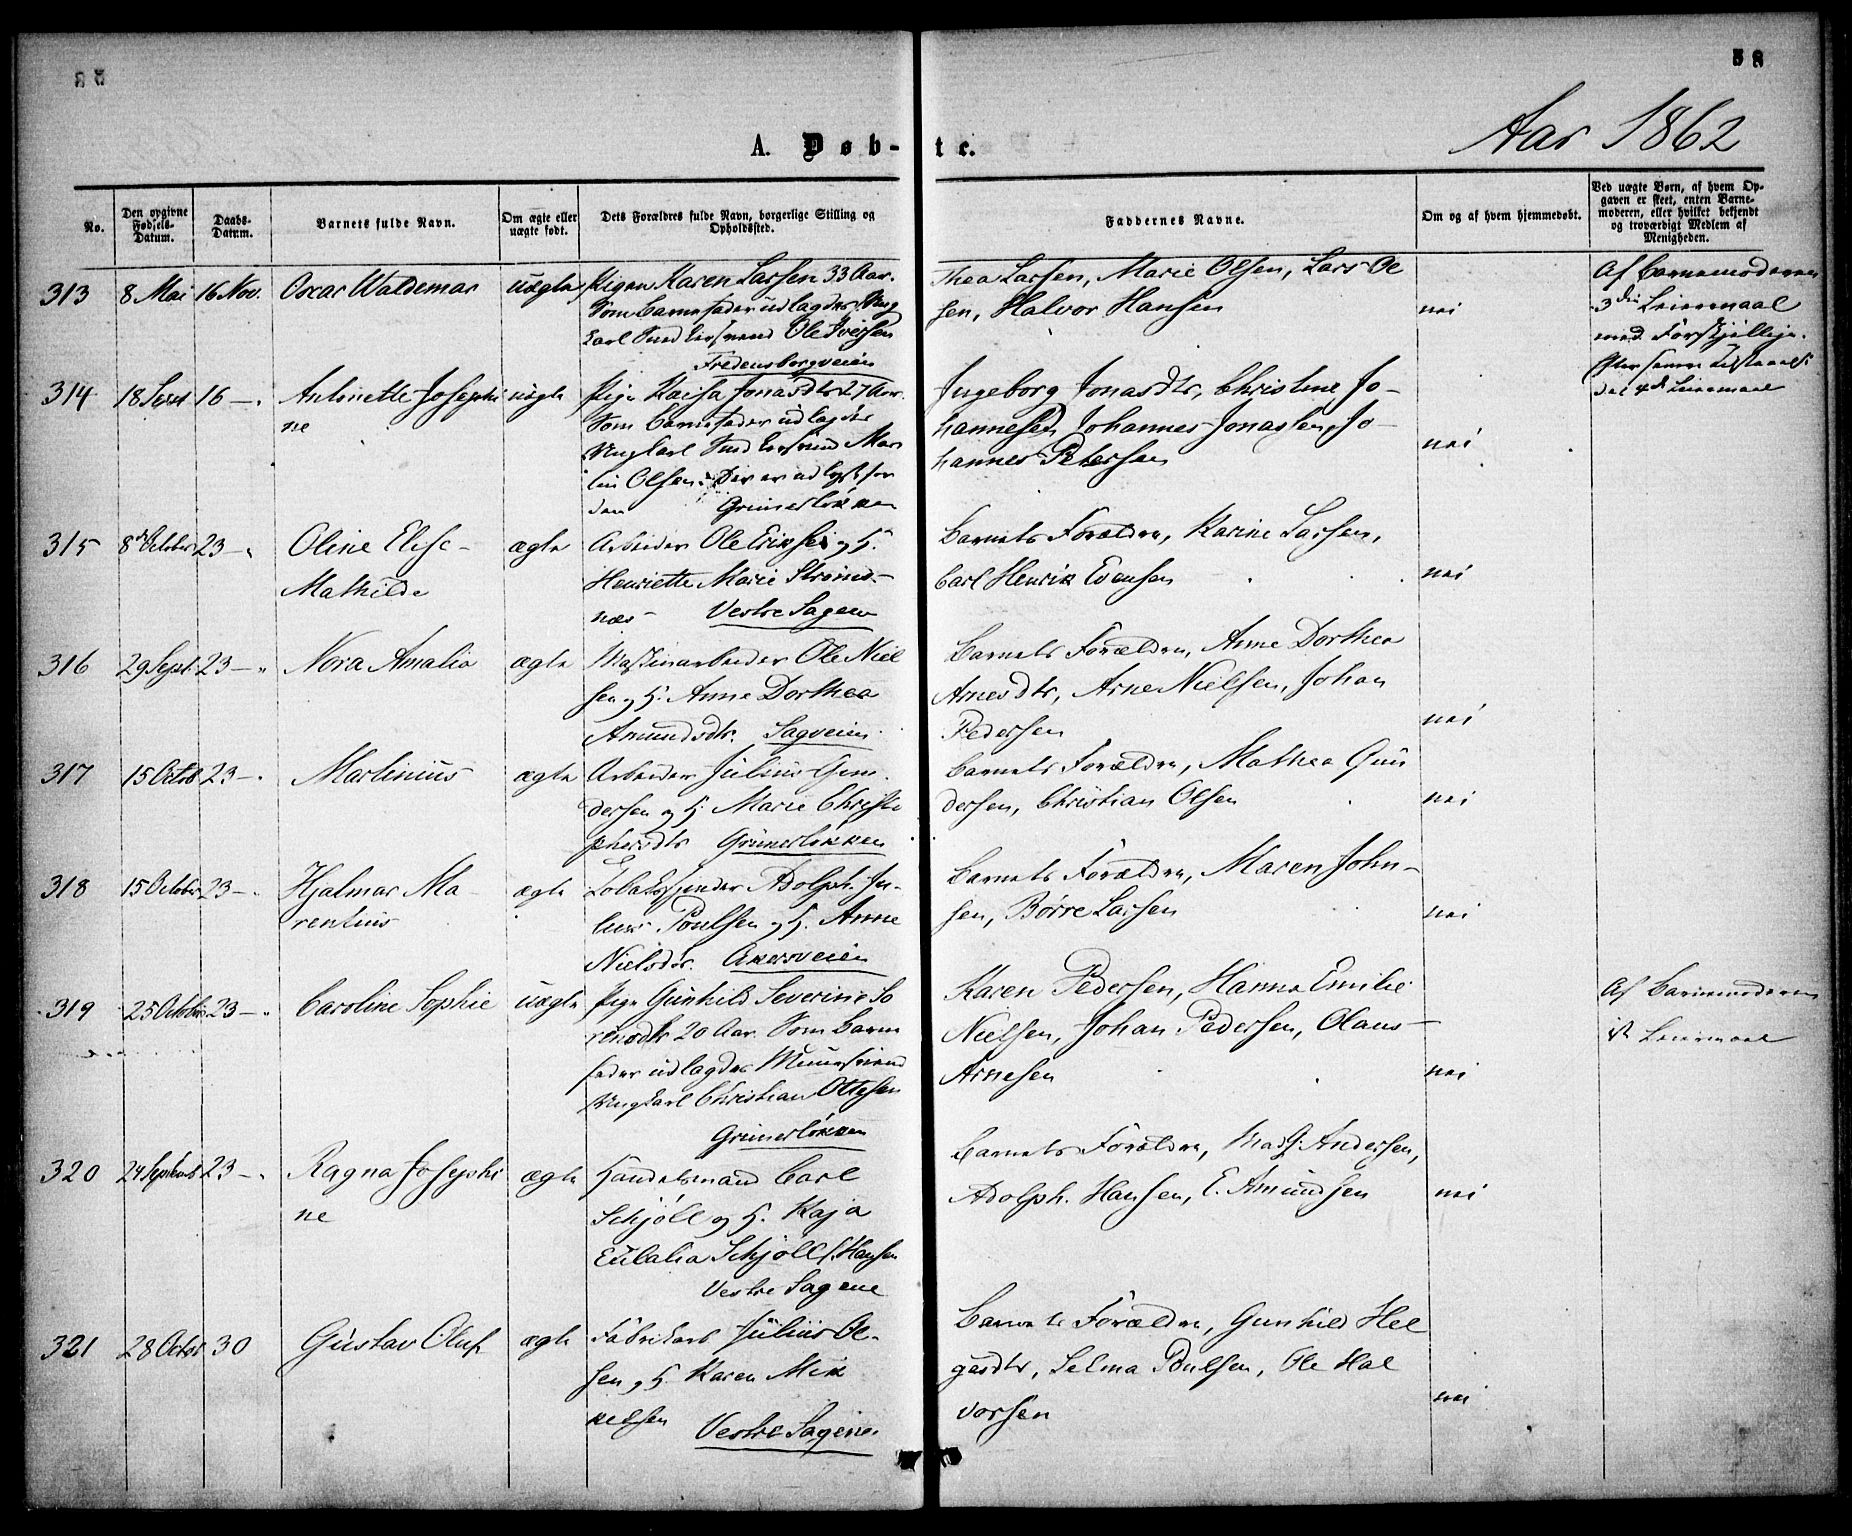 58
Aar 1862
A. Døb-te.
No.
Den opgivne Fødsels-Datum.
Daabs-Datum.
Barnets fulde Navn.
Om ægte eller uægte født.
Dets Forældres fulde Navn, borgerlige Stilling og Opholdssted.
Faddernes Navne.
Om og af hvem hjemmedøbt.
Ved uægte Børn, af hvem Opgaven er skeet, enten Barnemoderen, eller hvilket bekjendt og troværdigt Medlem af Menigheden.
313 8 Mai 16 Nov. Oscar Waldemar uægte Pigen Karen Larsen 33 Aar.
Som Barnefader udlagdes Ung
karl Ole Iversen
Fredensborgveien
Thea Larsen, Marie Olsen, Lars Ol
sen, Halvor Hansen
nei
Af Barnemoderen
3die Leiermaal
med Forskjellige.
314 16 — Antonette Josephi
ne
uægte Pige Kaisa Jonasdtr 27 Aar.
Som Barnefader udlagdes
Ungkarl Mar
tin Olsen.
Grünerløkken
Ingeborg Jonasdtr, Christine Jo-
hannesen, Johannes Jonassen, Jo-
hannes Petersen
nei
315 8de October 23 — Oline Elise
Mathilde
ægte Arbeider Ole Eriksen og H.
Henriette Marie Strøms-
næs — Vestre Sagene
Barnets Forældre, Karine Larsen,
Carl Henrik Evensen
nei
316 29 Sept. 23 — Nora Amalia ægte Maskinarbeider Ole Niel
sen og H. Anne Dorthea
Amundsdtr. Sagveien
Barnets Forældre, Anne Dorthea
Arnesdtr, Arne Nielsen, Johan
Pedersen
nei
317 15 Octob 23 — Martinius ægte Arbeider Julius Gun-
dersen og H. Marie Christo
phersdtr Grünerløkken
Barnets Forældre, Mathea Gun
dersen, Christian Olsen
nei
318 15 October 23 — Hjalmar Ma-
rentius
ægte Tobaksspinder Adolph Ju-
lius Poulsen og H. Anne
Nielsdtr. Akersveien
Barnets Forældre, Maren John-
sen, Børre Larsen
nei
319 25 October 23 — Caroline Sophie uægte Pige Gunhild Severine So
rensdtr 20 Aar. Som Barne
fader udlagdes Muursvend
Ungkarl Christian Ottesen
Grünerløkken
Karen Pedersen, Hanna Emilie
Nielsen, Johan Pedersen, Olaus
Arnesen
nei
Af Barnemoderen
1st Leiermaal
320 24 Septemb 23 — Ragna Josephi
ne
ægte Handelsmand Carl
Schjøll og H. Kaja
Eulalia Schjøll f. Hansen
Vestre Sagene
Barnets Forældre, Andersen,
Adolph. Hansen, E. Amundsen
nei
321 28 Octob 30 Gustav Oluf ægte Fabrikarb Julius Ol-
sen og H. Karen Mik
kelsen
Vestre Sagene
Barnets Forældre, Gunhild Hel
gesdtr, Selma Poulsen, Ole Hal
vorsen
nei